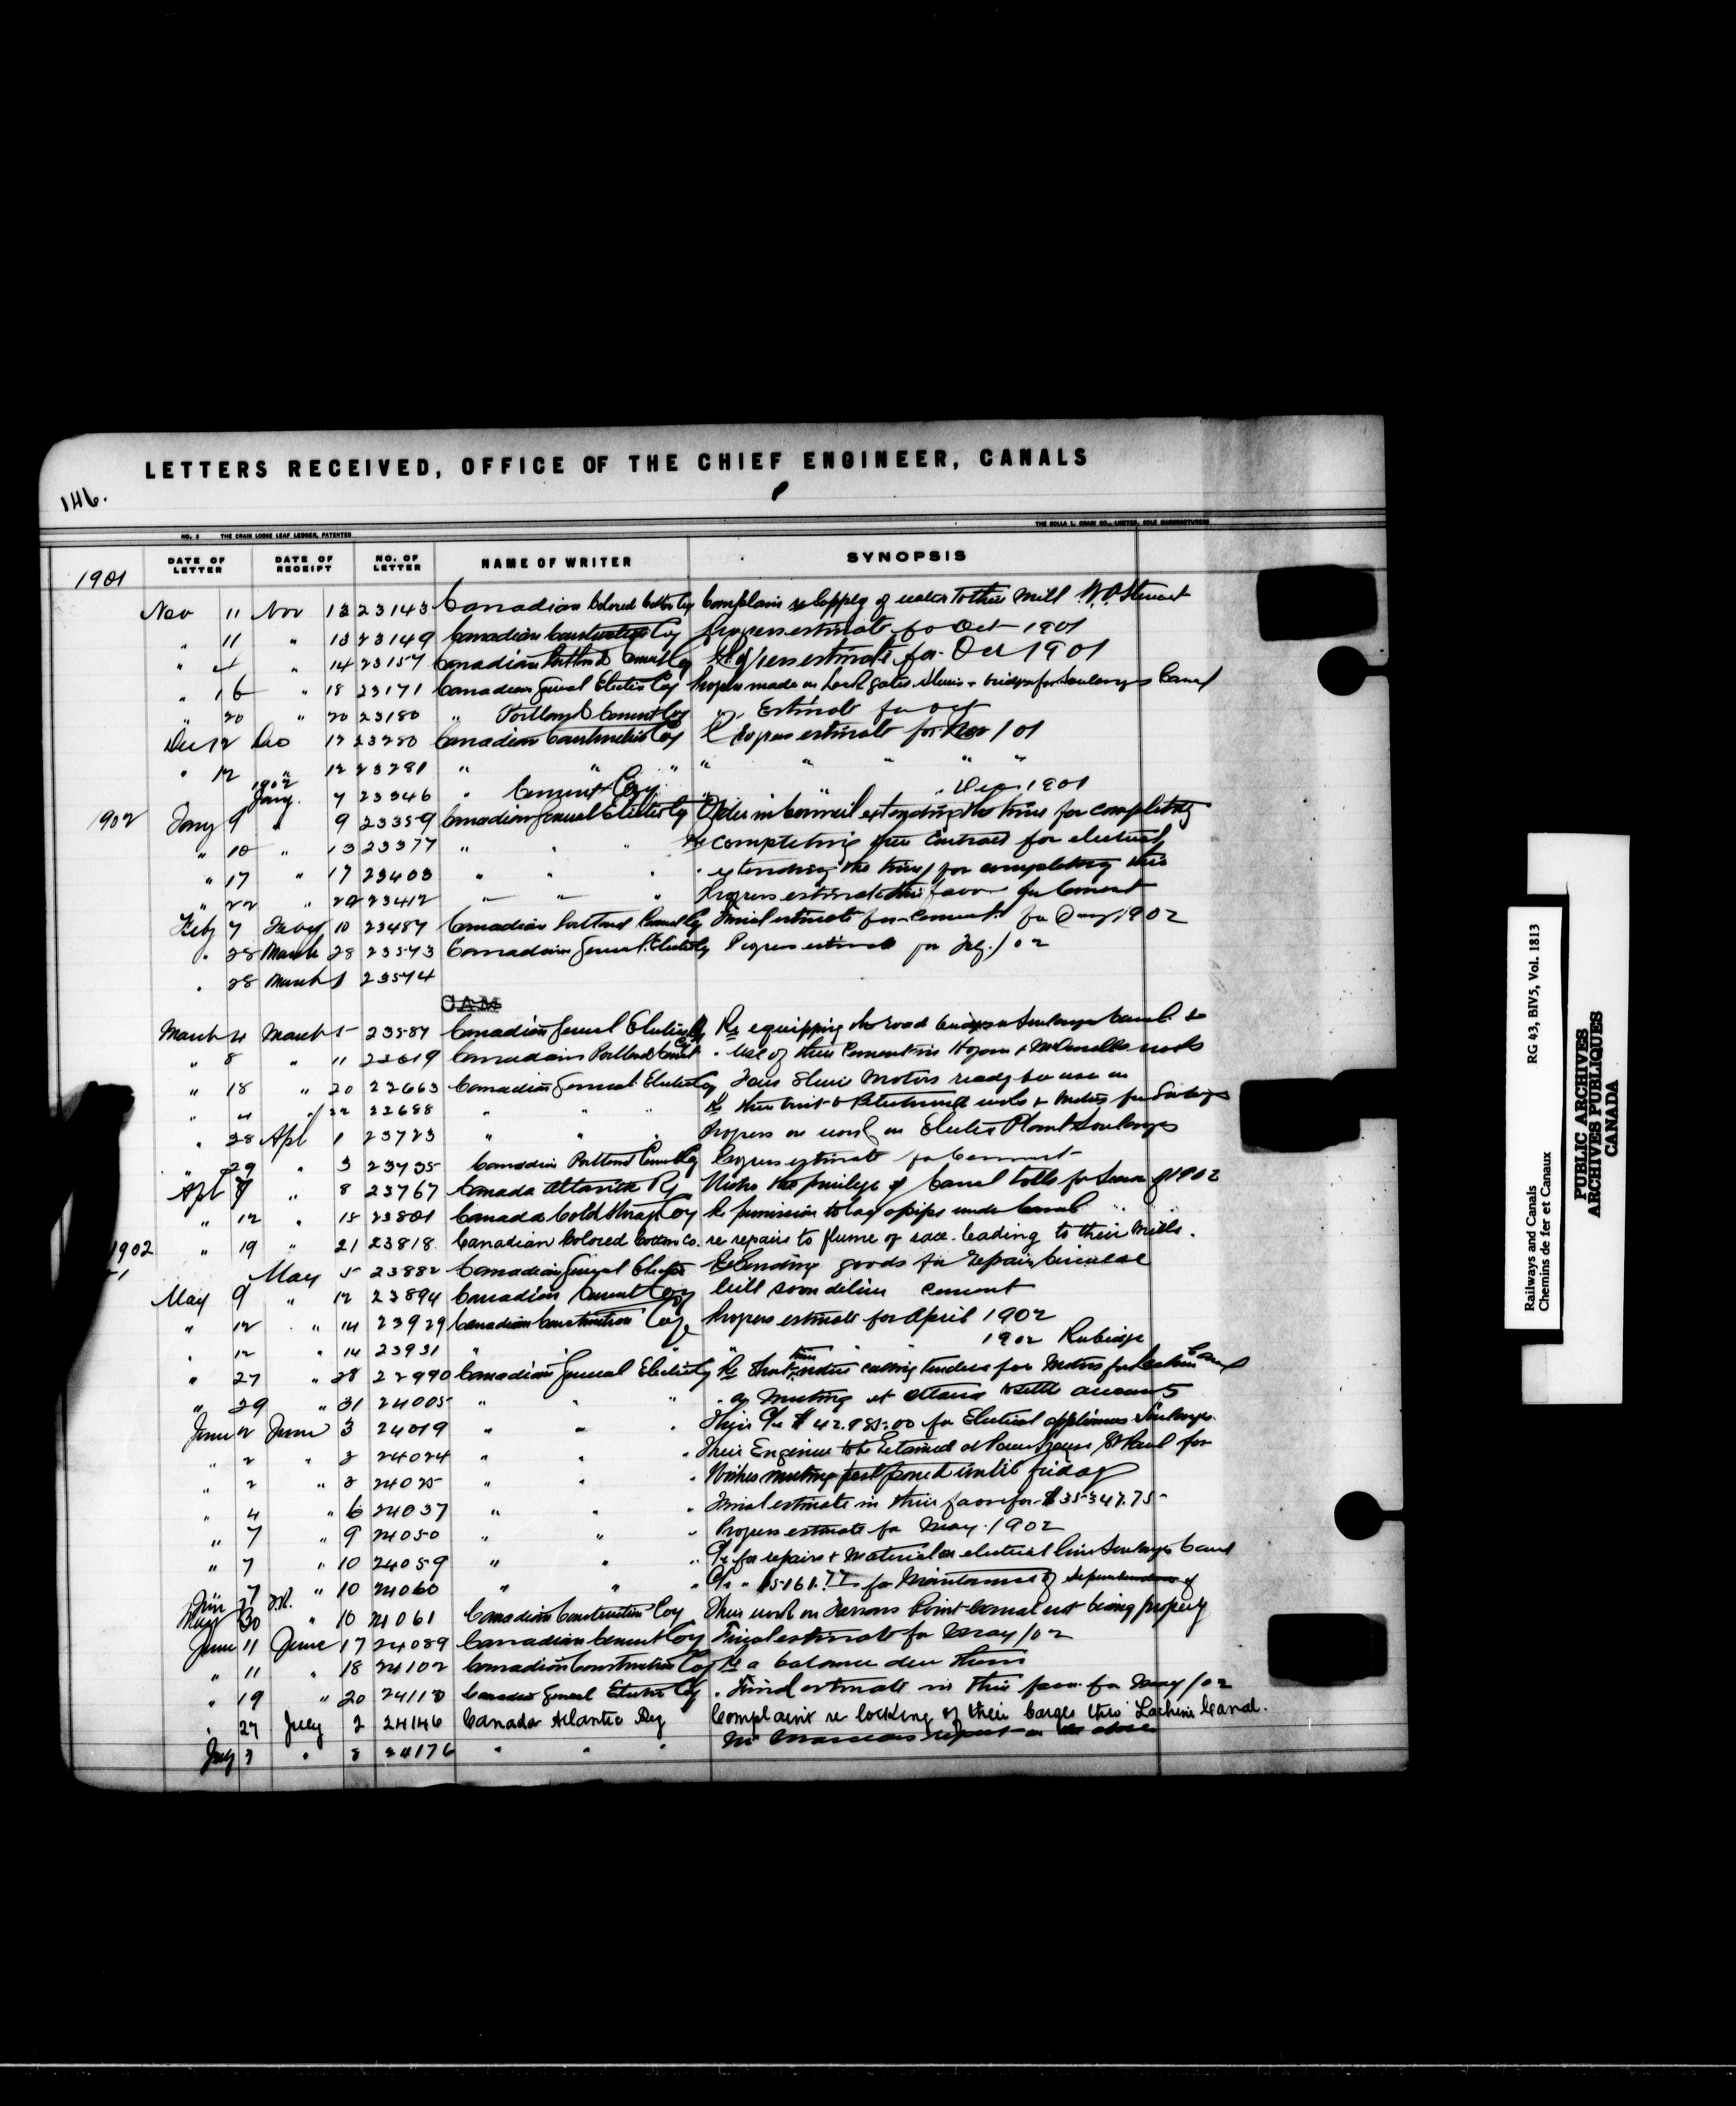 LETTERS RECEIVED, OFFICE OF THE CHIEF ENGINEER, CANALS
146.
NO. 2 THE CRAIN LOOSE LEAF LEDGER, PATENTED THE ROLLA L. CRAIN CO., LIMITED, SOLE MANUFACTURERS
1901 DATE OF LETTER DATE OF RECEIPT NO. OF LETTER NAME OF WRITER SYNOPSIS
Nov 11 Nov 13 23143 Canadian Colored Cotton Coy Complain re supply of water to their Mill
" 11 " 13 23149 Canadian Construction Coy Progress estimate for Oct 1901
" 4 " 14 23157 Canadian Portland Cement Coy Progress estimate for Oct 1901
" 16 " 18 23171 Canadian General Electric Coy Progress made on Lock gates, Sluice & bridges for Soulanges Canal
" 20 " 20 23180 " Portland Cement Coy " Estimate for Oct
Dec 12 Dec 12 23280 Canadian Construction Coy Progress estimate for Nov / 01
" 12 " 12 23281 " " " " " " " "
1902 Jany. 7 23346 " Cement Coy " " " Dec 1901
1902 Jany 9 " 9 23359 Canadian General Electric Coy Order in Council extending the time for completing
" 10 " 13 23377 " " " Re completing their Contract for electrical
" 17 " 17 23403 " " " " extending the time for completing this
" 22 " 22 23412 " " " Progress estimate their favor for Cement
Feby 7 Feby 10 23487 Canadian Portland Cement Coy Final estimate for cement for Jany 1902
" 28 March 28 23573 Canadian General Electric Coy Progress estimate for Feby. / 02
" 28 March 1 23574
CAM
March 4 March 5 23587 Canadian General Electric Coy Re equipping the road bridges on Soulanges Canal
" 8 " 11 23619 Canadian Portland Cement " Use of their Cement in Hogan & works
" 18 " 20 23663 Canadian General Electric Coy Four Sluice Motors ready for use on
" " 22 23688 " " " Re their & works & Motors for
" 28 Apl 1 23723 " " " Progress on work on Electric Plant Soulanges
" 29 " 3 23735 Canadian Portland Cement Coy Progress estimate for Cement
Apl 7 " 8 23767 Canada Atlantic Ry Wishes the privilege of Canal tolls for Season of 1902
" 12 " 15 23801 Canada Cold Storage Coy Re permission to lay a pipe under Canal " "
1902 " 19 " 21 23818 Canadian Colored Cotton Co. re repairs to flume of race leading to their Mills.
May 5 23882 Canadian General Electric Re Sending goods for repair
May 9 " 12 23894 Canadian Cement Coy Will soon deliver cement
" 12 " 14 23929 Canadian Construction Coy Progress estimate for April 1902
" 12 " 14 23931 " " 1902 Rubidge
" 27 " 28 23990 Canadian General Electric Coy Re their notice calling tenders for Motors for Lachine Canal
" 29 " 31 24005 " " " " a Meeting at Ottawa to settle accounts
June 2 June 3 24019 " " " Their A/c $42.985.00 for Electrical appliances Soulanges.
" 2 " 3 24024 " " " Their Engineer to be Retained at Power House St Paul for
" 2 " 3 24025 " " " Wishes meeting postponed until friday
" 4 " 6 24037 " " " Final estimate in their favor for $35347.75
" 7 " 9 24050 " " " Progress estimate for May. 1902
" 7 " 10 24059 " " " A/c for repairs & Material on electrical line Soulanges Canal
" 7 " 10 24060 " " " A/c " for Maintenance of
May 30 " 10 24061 Canadian Construction Coy Their work on Farrans Point Canal not being properly
June 11 June 17 24089 Canadian Cement Coy Final estimate for May / 02
" 11 " 18 24102 Canadian Construction Coy Re a balance due them
" 19 " 20 24118 Canadian General Electric Coy " Final estimate in their favor for May / 02
" 27 July 2 24146 Canada Atlantic Ry Complaint re locking of their barges thro' Lachine Canal.
July 7 " 8 24176 " " " Mr report on the above
Railways and Canals RG 43, BIV5, Vol. 1813
Chemins de fer et Canaux
PUBLIC ARCHIVES
ARCHIVES PUBLIQUES
CANADA